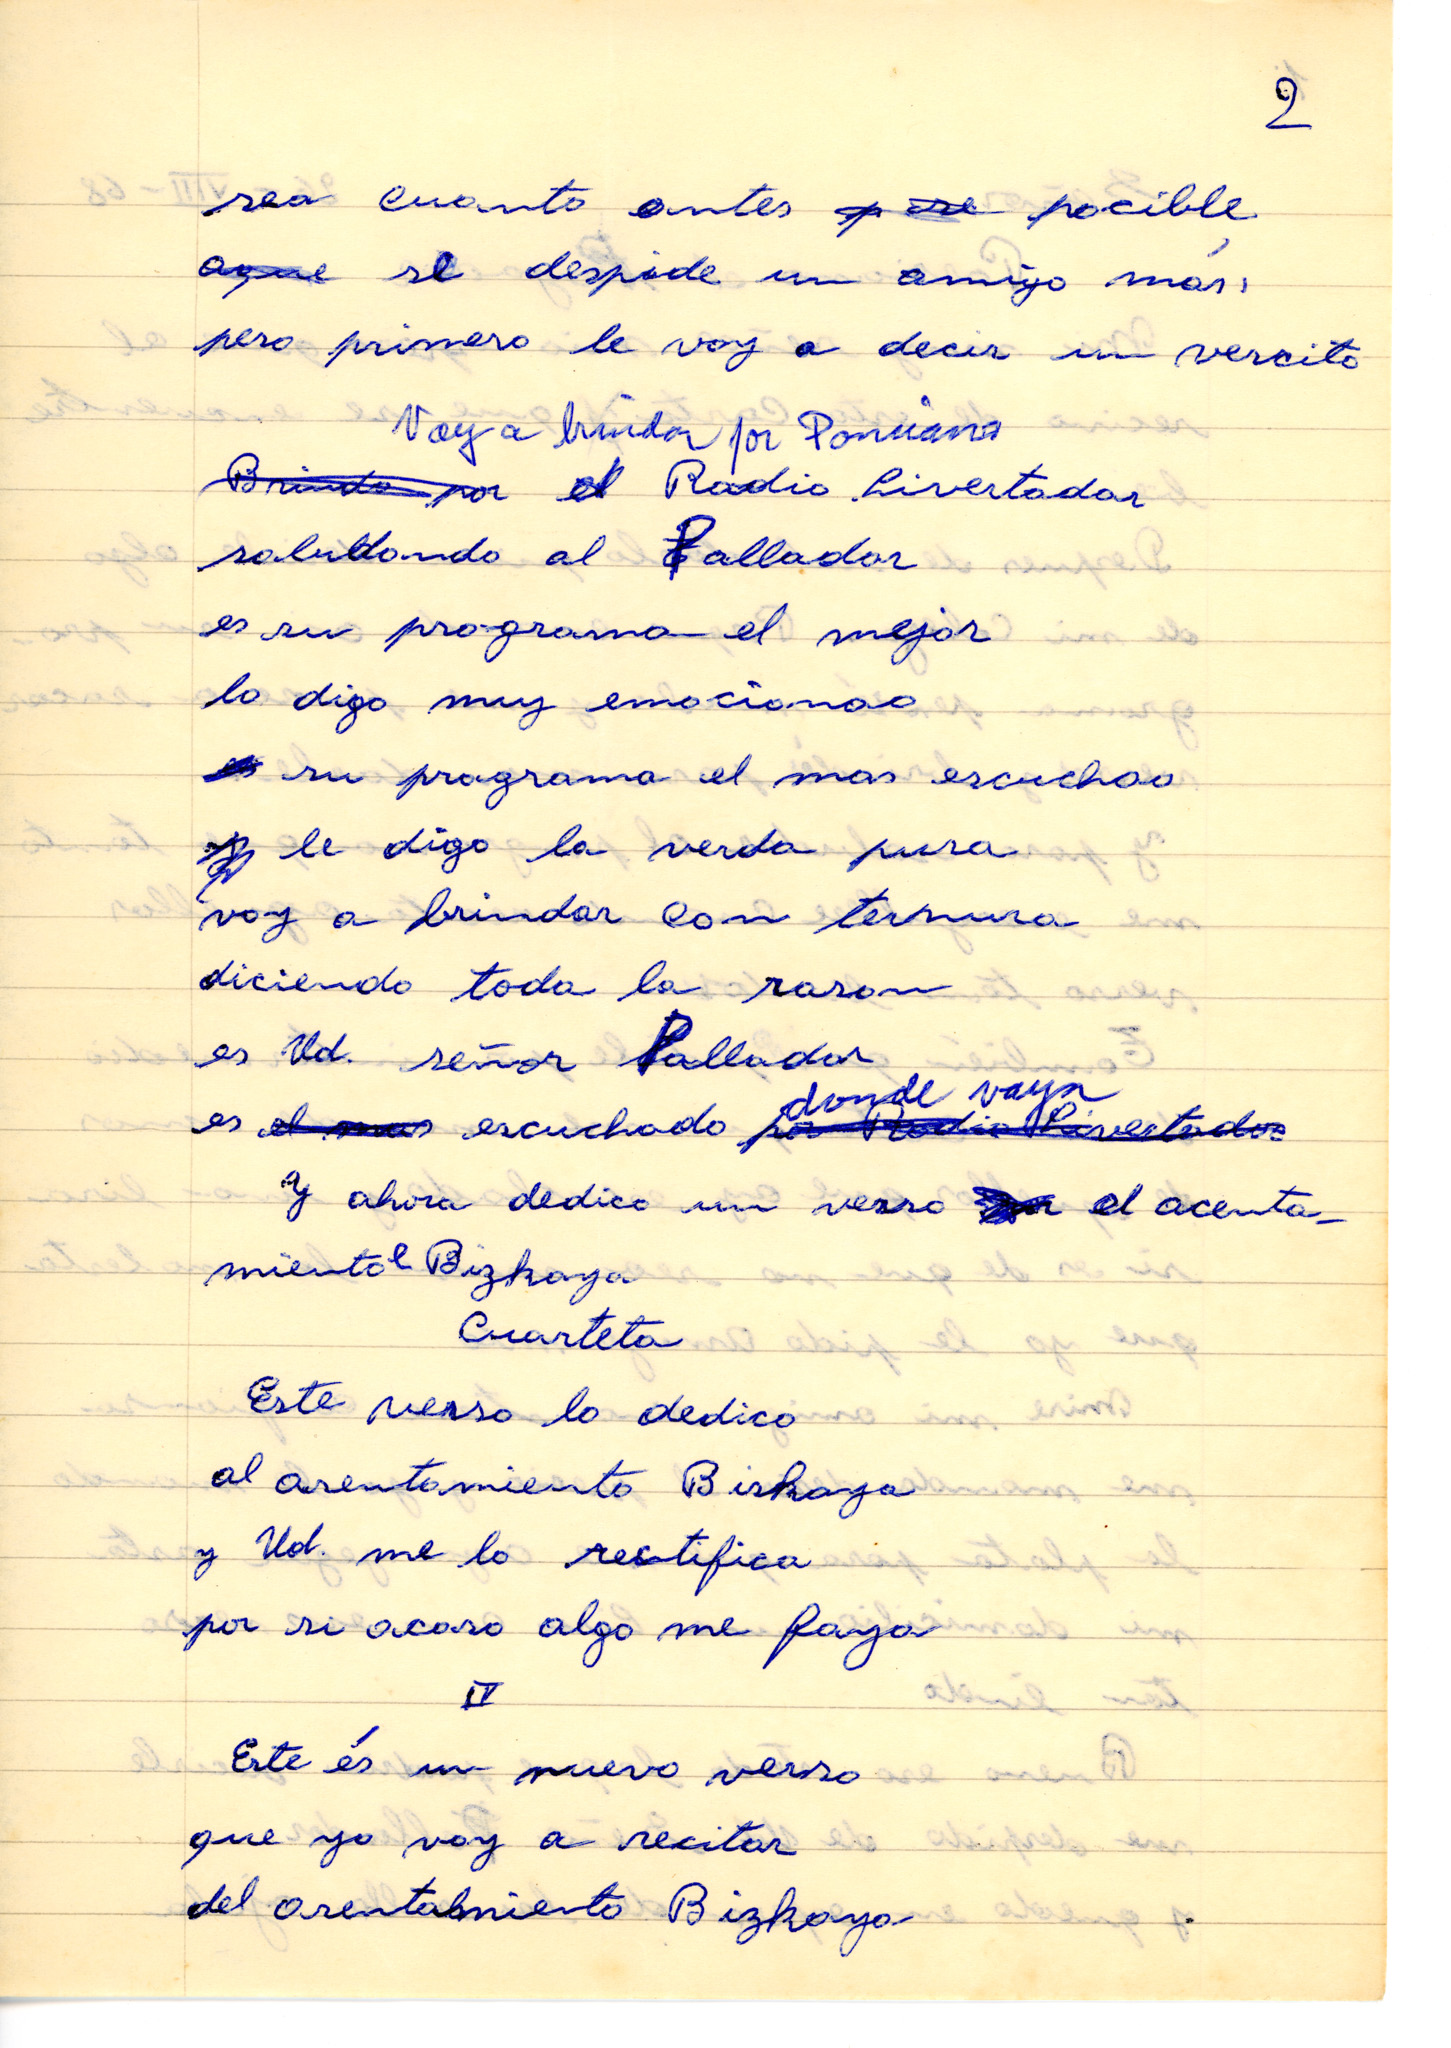 2
sea cuanto antes pocible,
se despide un amigo más,
pero primero le voy a decir un vercito
Voy a brindar por Ponciano
Brindo por el Radio Livertador
saludando al Pallador
es su programa el mejor
lo digo muy emocionao
es su programa el mas escuchao
le digo la verda pura
voy a brindar con ternura
diciendo toda la rason
es Ud. señor Pallador
donde vaya
es el mas escuchado por Radio Livertador
Y ahora dedico un verso el acenta-
miento Bizkaya
Cuarteta
Este verso lo dedico
al asentamiento Biskaya
y Ud. me lo rectifica
por si acaso algo me faya
II
Este és un nuevo verso
que yo voy a recitar
del asentamiento Bizkaya